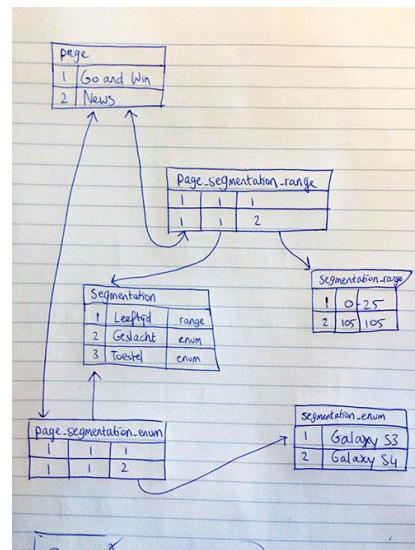 page
1 Go and Win
2 News
page_segmentation_range
1 1 1
1 1 2
segmentation_range
1 0-25
2 105 105
Segmentation
1 Leeftijd range
2 Geslacht enum
3 Toestel enum
page_segmentation_enum
1 1 1
1 1 2
segmentation_enum
1 Galaxy S3
2 Galaxy S4